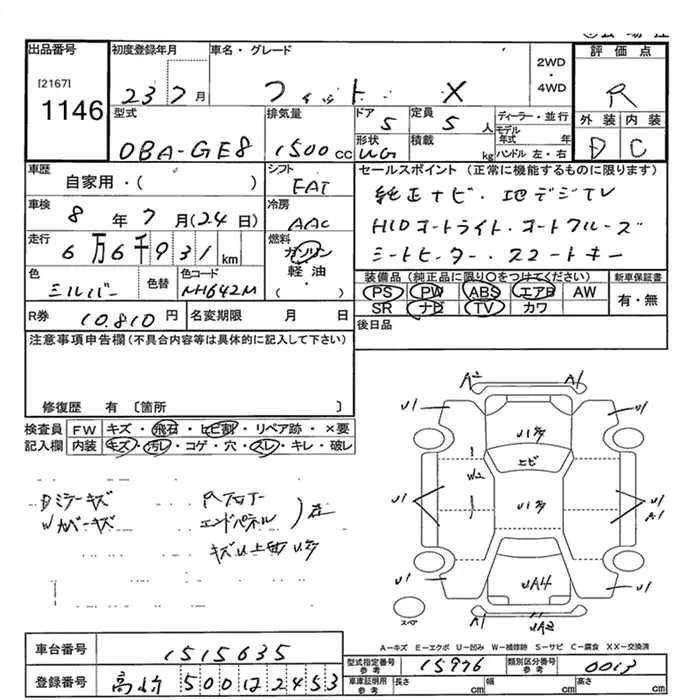 出品番号 初度登録年月 車名・グレード 2WD・4WD 評価点
[2167]
1146
23 7月 フィット X R
型式 排気量 ドア 定員 ディーラー・並行 外装 内装
0BA-GE8 1500cc 5 5人 モデル年式 年 D C
形状 積載 kg ハンドル 左・右
車歴 シフト セールスポイント (正常に機能するものに限ります)
自家用・( ) FAT 純正ナビ・地デジTV
車検 8年7月(24日) 冷房 AAC HIDオートライト・オートクルーズ
走行 6万6千931km 燃料 ガソリン・軽油・( ) シートヒーター・スマートキー
色 シルバー 色替 色コード NH642M
装備品 (純正品に限り○をつけてください) 新車保証書
PS PW ABS エアB AW 有・無
SR ナビ TV カワ
R券 10.810円 名変期限 月 日 後日品
注意事項申告欄 (不具合内容等は具体的に記入して下さい)
修復歴 有 〔箇所 〕
検査員記入欄 FW キズ・飛石・ヒビ割・リペア跡・×要
内装 キズ・汚レ・コゲ・穴・スレ・キレ・破レ
A2 A1
U1 U1
W2
U1 U1
A1
U1 U1
A1 UA2
スペア
Dミラーキズ
Wカバーキズ
エンドパネル
A-キズ E-エクボ U-凹み W-補修跡 S-サビ C-腐食 XX-交換済
車台番号 1515635
型式指定番号 参考 15976 類別区分番号 参考 0013
登録番号 500 12453
車庫証明用 参考 長さ cm 幅 cm 高さ cm